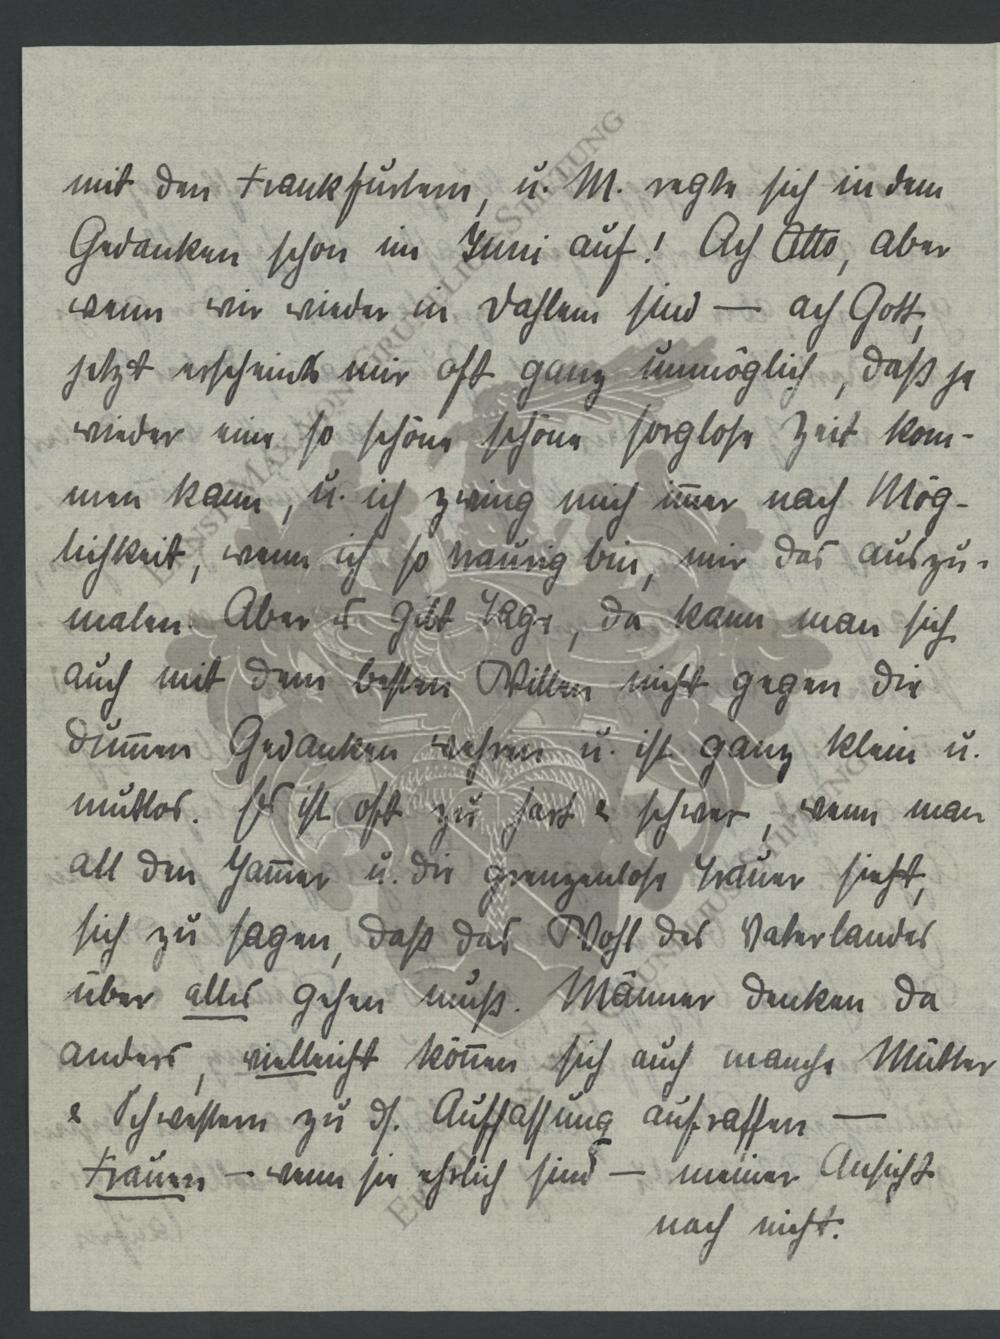 mit den Frankfurtern, u. M. regte sich in dem
Gedanken schon im Juni auf! Ach Otto, aber
wenn wir wieder in Dahlem sind — ach Gott,
jetzt erscheints mir oft ganz unmöglich, daß je
wieder eine so schöne schöne sorglose Zeit kom-
men kann, u. ich zwing mich im̅er nach Mög-
lichkeit, wenn ich so traurig bin, mir das auszu-
malen. Aber es gibt Tage, da kann man sich
auch mit dem besten Willen nicht gegen die
dum̅en Gedanken wehren u. ist ganz klein u.
mutlos. Es ist oft zu hart & schwer, wenn man
all den Jam̅er u. die grenzenlose Trauer sieht,
sich zu sagen, daß das Wohl des Vaterlandes
über alles gehen muß. Männer denken da
anders, vielleicht kön̅en sich auch manche Mütter
& Schwestern zu ds. Auffassung aufraffen —
Frauen — wenn sie ehrlich sind — meiner Ansicht
nach nicht.
ERNST MAX VON GRUNELIUS STIFTUNG
ERNST MAX VON GRUNELIUS STIFTUNG